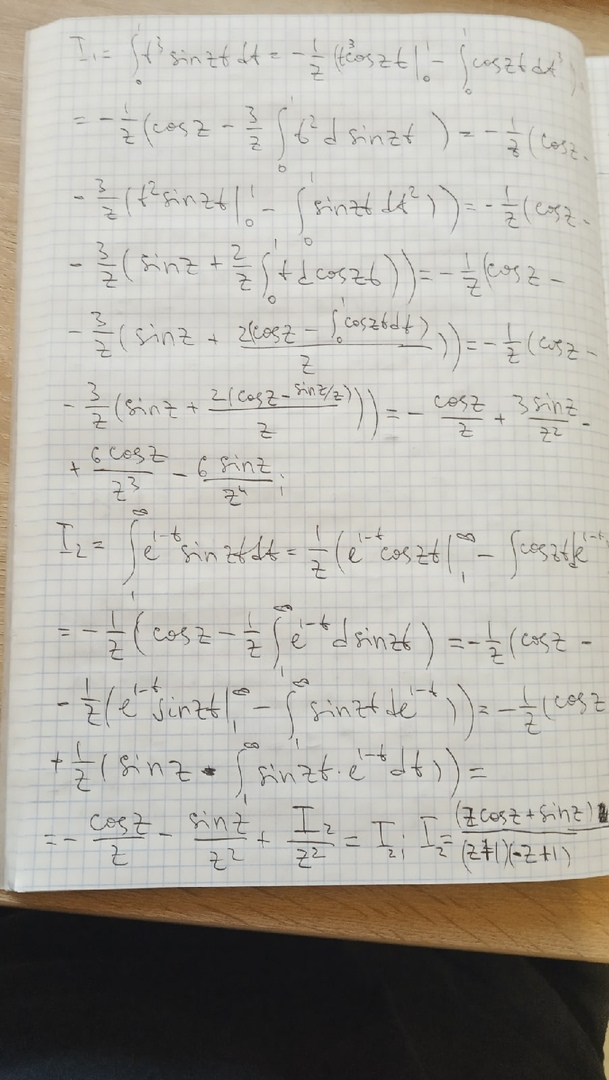 I₁ = ∫₀¹ t³ sin zt dt = -1/z (t³ cos zt |₀¹ - ∫₀¹ cos zt dt³)
= -1/z (cos z - 3/z ∫₀¹ t² d sin zt) = -1/z (cos z -
- 3/z (t² sin zt |₀¹ - ∫₀¹ sin zt dt²)) = -1/z (cos z -
- 3/z (sin z + 2/z ∫₀¹ t d cos zt)) = -1/z (cos z -
- 3/z (sin z + 2(cos z - ∫₀¹ cos zt dt)/z)) = -1/z (cos z -
- 3/z (sin z + 2(cos z - sin z/z)/z)) = - cos z/z + 3 sin z/z² -
+ 6 cos z/z³ - 6 sin z/z⁴ ;
I₂ = ∫₁^∞ e^(1-t) sin zt dt = 1/z (e^(1-t) cos zt |₁^∞ - ∫ cos zt de^(1-t)
= -1/z (cos z - 1/z ∫₁^∞ e^(1-t) d sin zt) = -1/z (cos z -
- 1/z (e^(1-t) sin zt |₁^∞ - ∫₁^∞ sin zt de^(1-t))) = -1/z (cos z
+ 1/z (sin z - ∫₁^∞ sin zt · e^(1-t) dt)) =
= - cos z/z - sin z/z² + I₂/z² = I₂; I₂ = (z cos z + sin z)/((z+1)(-z+1)